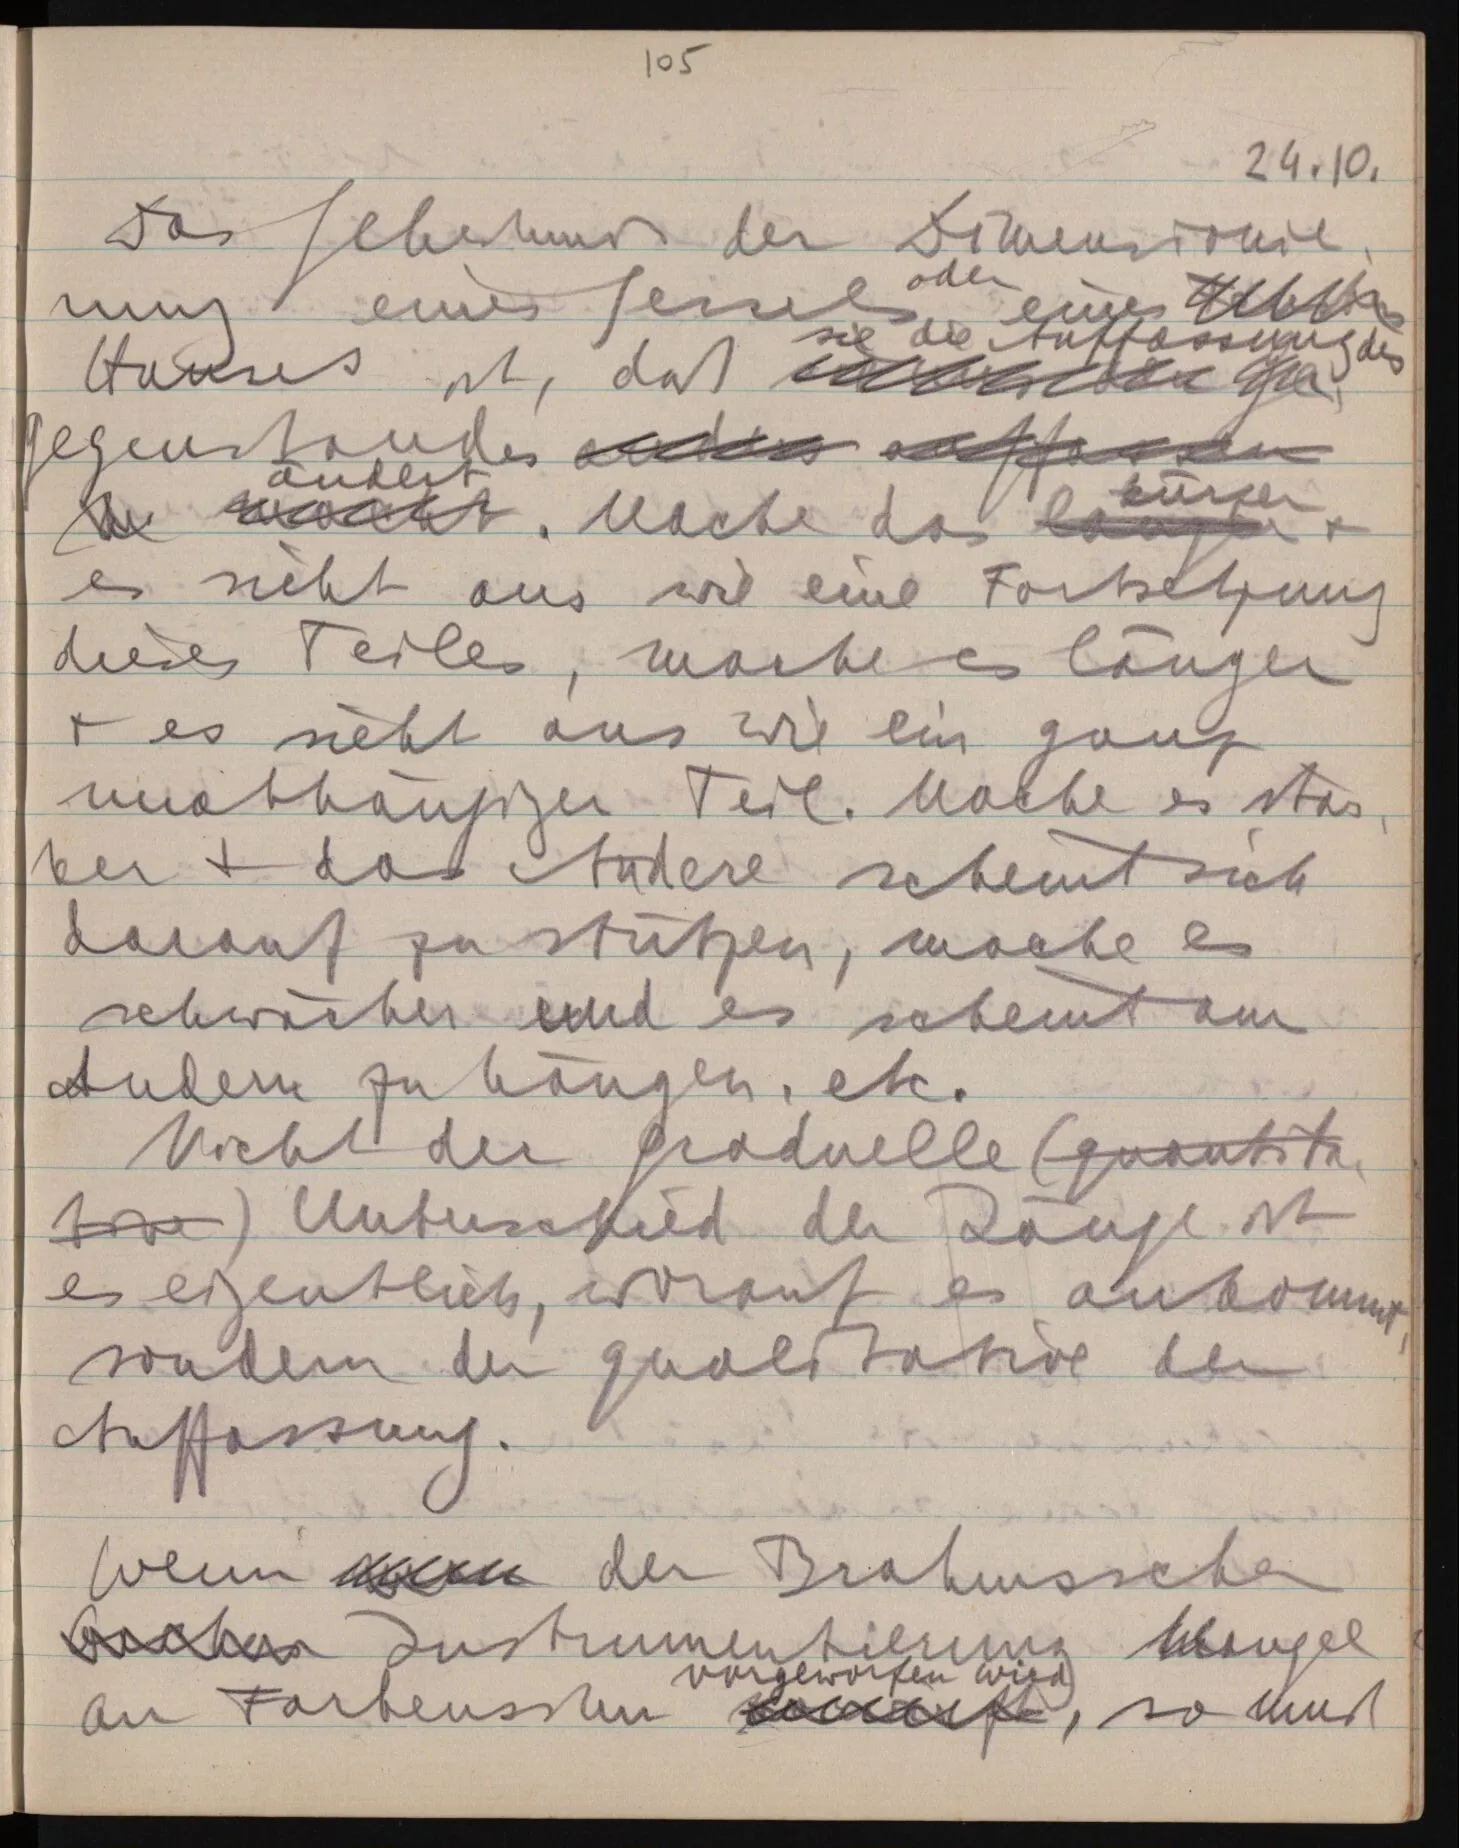 105
24.10.
Das Geheimnis der Dimensionie-
rung eines Sessels oder eines
sie die Auffassung des
Hauses ist, daß
Gegenstandes anders auffassen
ändert
macht. Mache das länger kürzer +
es sieht aus wie eine Fortsetzung
dieses Teiles, mache es länger
+ es sieht aus wie ein ganz
unabhängiger Teil. Mache es stär-
ker + das Andere scheint sich
darauf zu stützen, mache es
schwächer und es scheint am
Andern zu hängen. etc.
Nicht der graduelle (quantita-
tive) Unterschied der Länge ist
es eigentlich, worauf es ankommt,
sondern der qualitative der
Auffassung.
Wenn man der Brahmsschen
Instrumentierung Mangel
vorgeworfen wird
an Farbensinn vorwirft, so muß